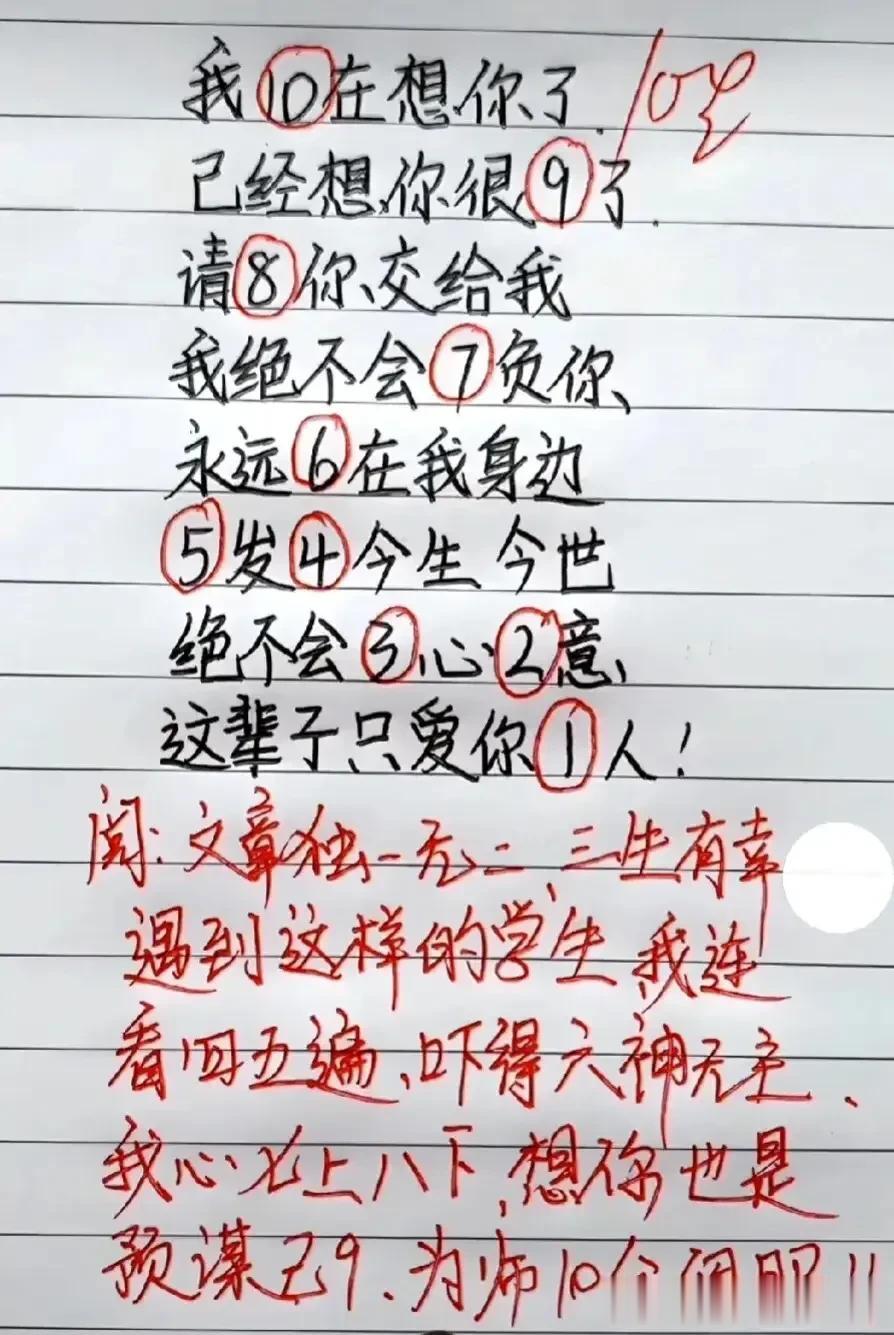 我10在想你了. 10分
已经想你很9了.
请8你交给我
我绝不会7负你、
永远6在我身边
5发4今生今世
绝不会3心2意、
这辈子只爱你1人!
阅:文章独一无二、三生有幸
遇到这样的学生、我连
看四五遍、吓得六神无主、
我心七上八下、想你也是
预谋已9、为师10分